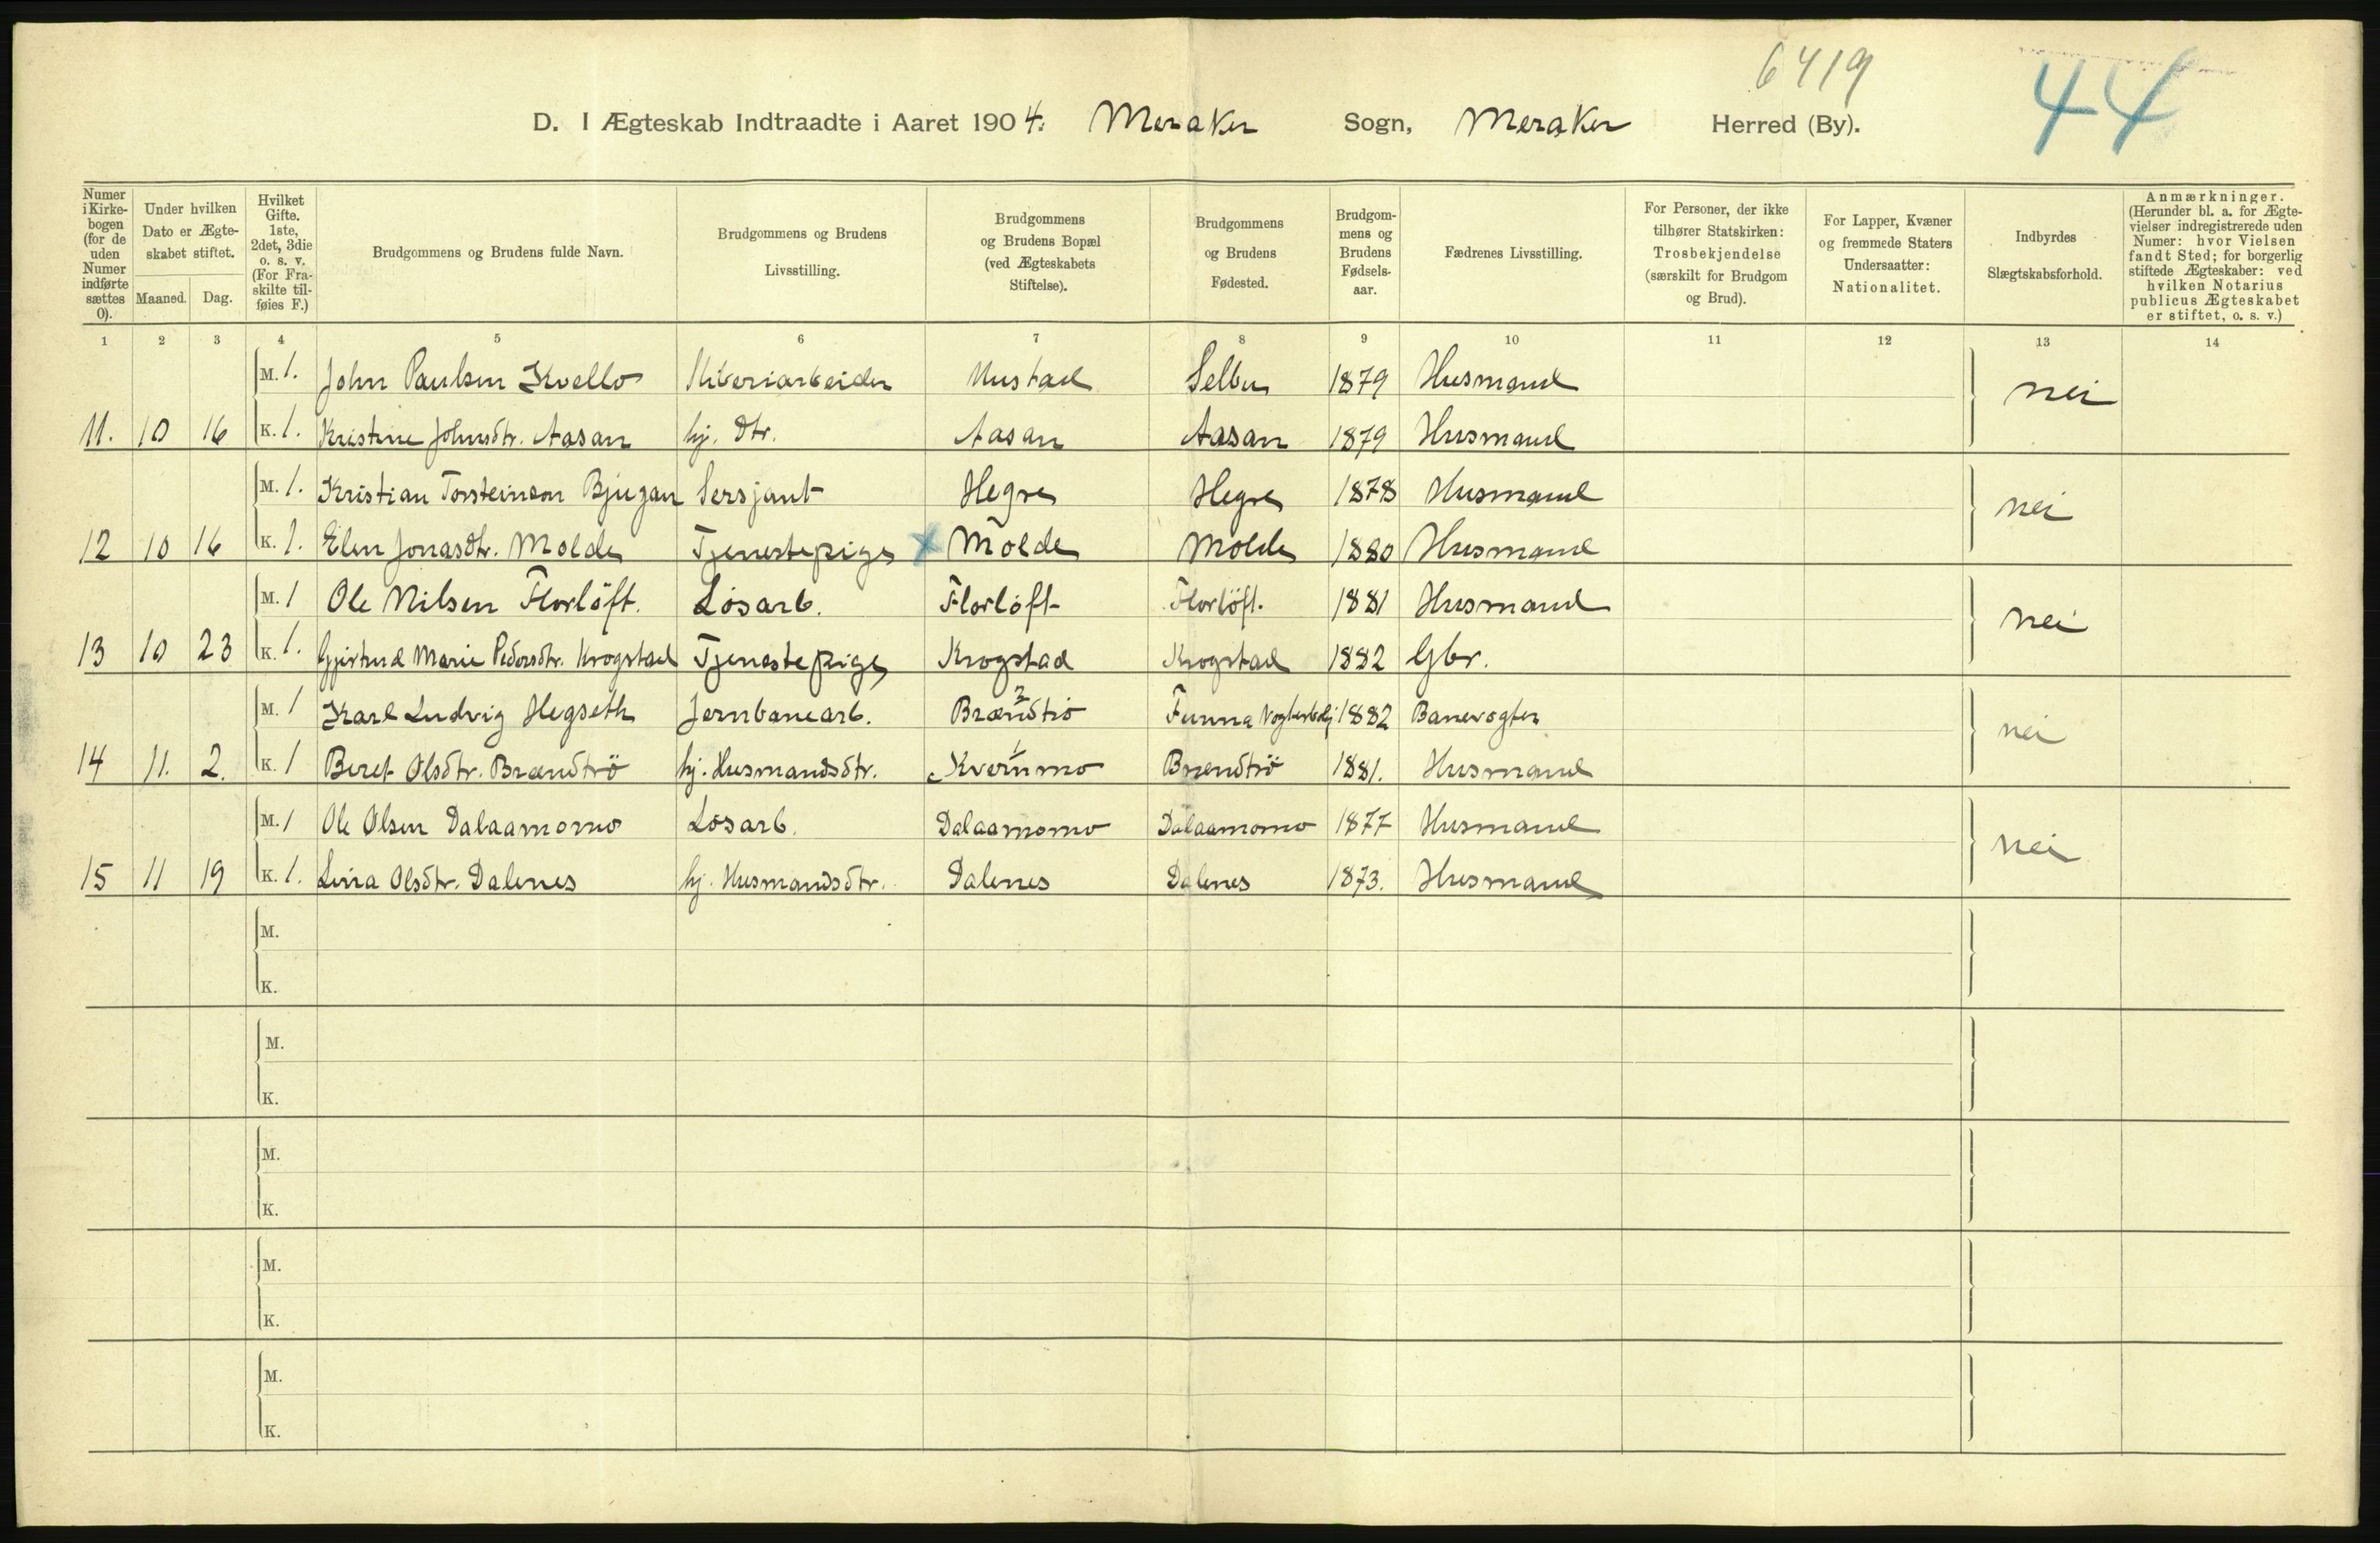 6419
44
D. I Ægteskab Indtraadte i Aaret 1904. Meraker Sogn, Meraker Herred (By).
Numer i Kirke-bogen (for de uden Numer indførte sættes 0).
Under hvilken Dato er Ægte-skabet stiftet.
Maaned. Dag.
Hvilket Gifte. 1ste, 2det, 3die o. s. v. (For Fra-skilte til-føies F.)
Brudgommens og Brudens fulde Navn.
Brudgommens og Brudens Livsstilling.
Brudgommens og Brudens Bopæl (ved Ægteskabets Stiftelse).
Brudgommens og Brudens Fødested.
Brudgom-mens og Brudens Fødsels-aar.
Fædrenes Livsstilling.
For Personer, der ikke tilhører Statskirken: Trosbekjendelse (særskilt for Brudgom og Brud).
For Lapper, Kvæner og fremmede Staters Undersaatter: Nationalitet.
Indbyrdes Slægtskabsforhold.
Anmærkninger. (Herunder bl. a. for Ægte-vielser indregistrerede uden Numer: hvor Vielsen fandt Sted; for borgerlig stiftede Ægteskaber: ved hvilken Notarius publicus Ægteskabet er stiftet, o. s. v.)
1 2 3 4 5 6 7 8 9 10 11 12 13 14
M. 1. John Paulsen Kvello Sliberiarbeider Mustad Selbu 1879 Husmand nei
11. 10 16 K. 1. Kristine Johnsdtr. Aasan hj. dtr. Aasan Aasan 1879 Husmand
M. 1. Kristian Torsteinson Bjugan Sersjant Hegre Hegre 1878 Husmand nei
12 10 16 K. 1. Elen Jonasdtr. Molde Tjenestepige x Molde Molde 1880 Husmand
M. 1 Ole Nilsen Florløft. Løsarb. Florløft Florløft. 1881 Husmand nei
13 10 23 K. 1. Gjertrud Marie Pedersdtr. Krogstad Tjenestepige Krogstad Krogstad 1882 Gbr.
M. 1 Karl Ludvig Hegseth Jernbanearb. Brændtrø 2 Funna Vogterbolig 1882 Banevogter nei
14 11. 2. K. 1 Beret Olsdtr. Brændtrö hj. Husmandsdtr. Kvernmo 1 Brændtrö 1881. Husmand
M. 1 Ole Olsen Dalaamomo Løsarb. Dalaamomo Dalaamomo 1877 Husmand nei
15 11 19 K. 1. Lina Olsdtr. Dalenes hj. Husmandsdtr. Dalenes Dalenes 1873. Husmand
M.
K.
M.
K.
M.
K.
M.
K.
M.
K.